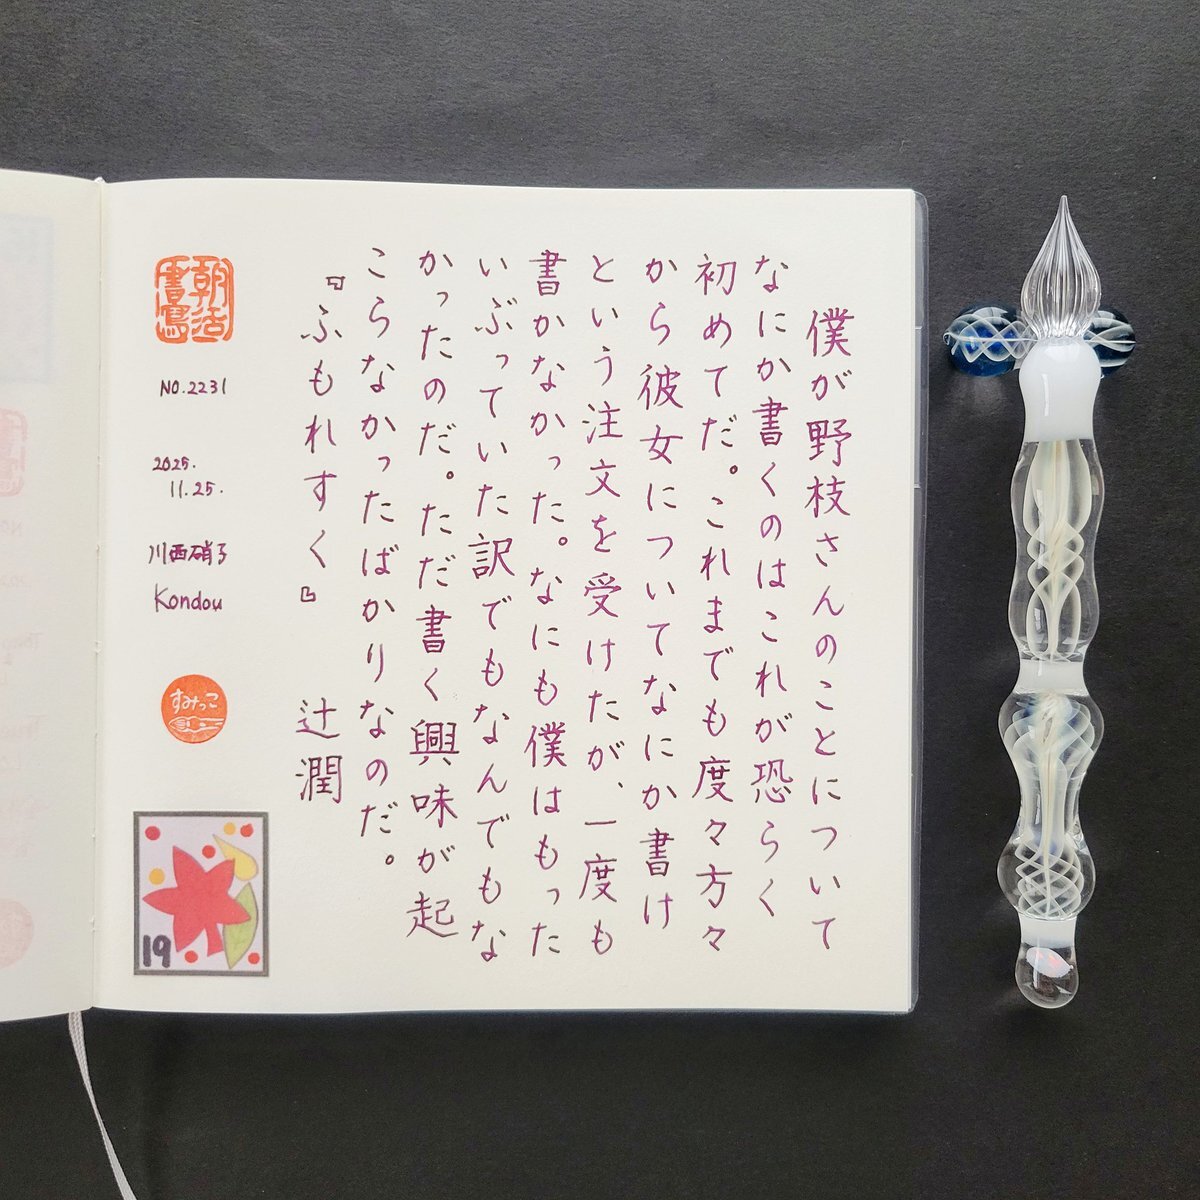 僕が野枝さんのことについて
なにか書くのはこれが恐らく
初めてだ。これまでも度々方々
から彼女についてなにか書け
という注文を受けたが、一度も
書かなかった。なにも僕はもった
いぶっていた訳でもなんでもな
かったのだ。ただ書く興味が起
こらなかったばかりなのだ。
『ふもれすく』 辻潤
朝活書写
NO.2231
2025.
11.25.
川西硝子
Kondou
すみっこ
19